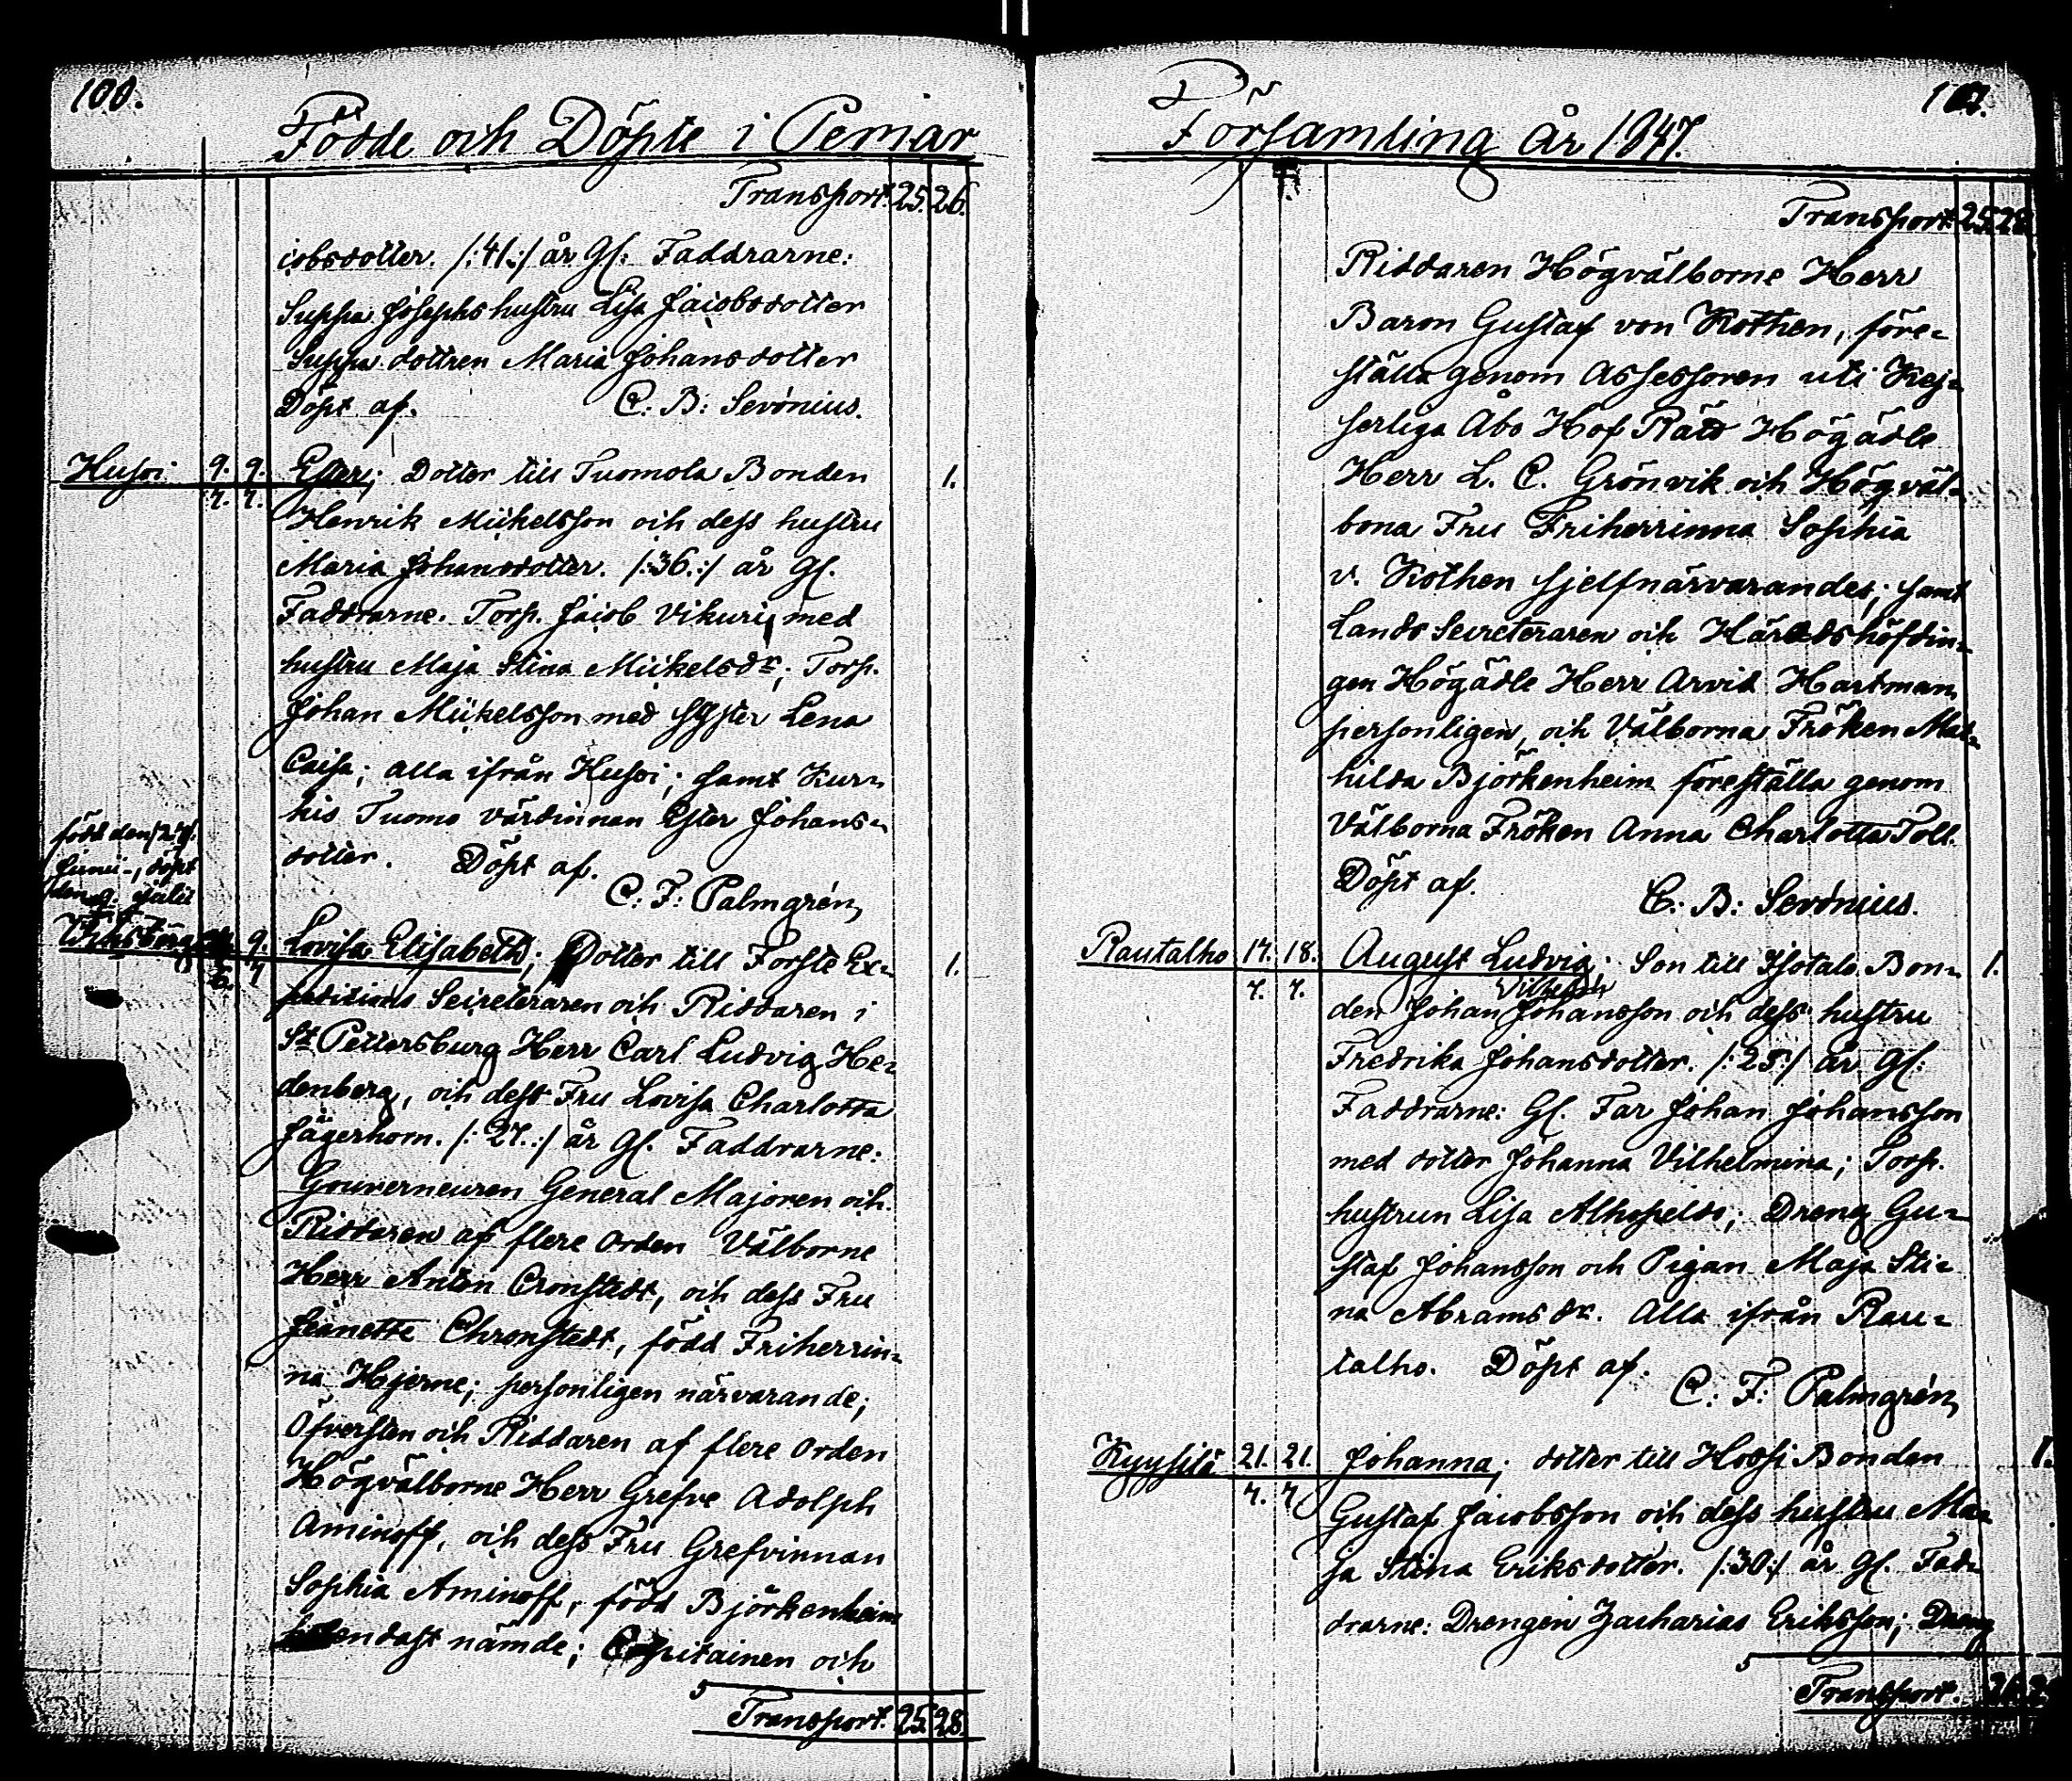 100.
Födde och Döpte i Pemar
Transport. 25. 26.
cobsdotter. /:41:/ år gl: Faddrarne:
Suppa Josephs hustru Lisa Jacobsdotter
Suppa dottren Maria Johansdotter
Döpt af. C: B: Serénius.
Husoi 9. 9. Ester; Dotter till Tuomola Bonden 1.
7. 7.
Henrik Mickelsson och dess hustru
Maria Johansdotter. /:36.:/ år gl.
Faddrarne. Torp. Jacob Vikuri med
hustru Maja Stina Mickelsdr; Torp.
Johan Mickelsson med syster Lena
Caisa; alla ifrån Husoi; samt Kur-
kis Tuomo värdinnan Ester Johans-
dotter. Döpt af.
C: F: Palmgrén
född den
Junii, döpt
den 9. Julii
9. Lovisa Elisabeth; Dotter till Förste Ex- 1.
6. 7
peditions Secreteraren och Riddaren i
St Pettersburg Herr Carl Ludvig He-
denberg, och dess Fru Lovisa Charlotta
Jägerhorn. /:27.:/ år gl. Faddrarne:
Gouverneuren General Majoren och
Riddaren af flere Orden Välborne
Herr Anton Cronstedt, och dess Fru
Jeanette Chronstedt, född Friherrin-
na Hjerne; personligen närvarande;
Öfversten och Riddaren af flere Orden
Högvälborne Herr Grefve Adolph
Aminoff, och dess Fru Grefvinnan
Sophia Aminoff, född Björkenheim
endast nämde; Capitainen och
Transport. 25. 28.
Församling år 1847.
Transport. 25. 28.
Riddaren Högvälborne Herr
Baron Gustaf von Kothen, före-
ställa genom Assessoren uti Kej-
serliga Åbo Hof Rätt Högädle
Herr L. C. Grönvik och Högväl-
borna Fru Friherrinna Sophia
v. Kothen sjelfnärvarandes; samt
Lands Secreteraren och Häradshöfdin-
gen Högädle Herr Arvid Hartman
personligen, och Välborna Fröken Mat-
hilda Björkenheim föreställa genom
Välborna Fröken Anna Charlotta Toll.
Döpt af.
C: B: Serénius.
Rautalho 17. 18. August Ludvig; Son till Isotalo Bon- 1.
7. 7. Vilhelm
den Johan Johansson och dess hustru
Fredrika Johansdotter. /:25:/ år gl:
Faddrarne: Gl. Far Johan Johansson
med dotter Johanna Vilhelmina; Torp.
hustrun Lisa Alhopeldo; Dreng Gu-
staf Johansson och Pigan Maja Sti-
na Abramsdr. Alla ifrån Rau-
talho. Döpt af.
C: F: Palmgrén
Kyysilä 21. 21. Johanna; dotter till Hossi Bonden 1.
7. 7
Gustaf Jacobsson och dess hustru Ma-
ja Stina Eriksdotter. /:30:/ år gl. Fad-
drarne: Drengen Zacharias Eriksson; Dreng
Transport.